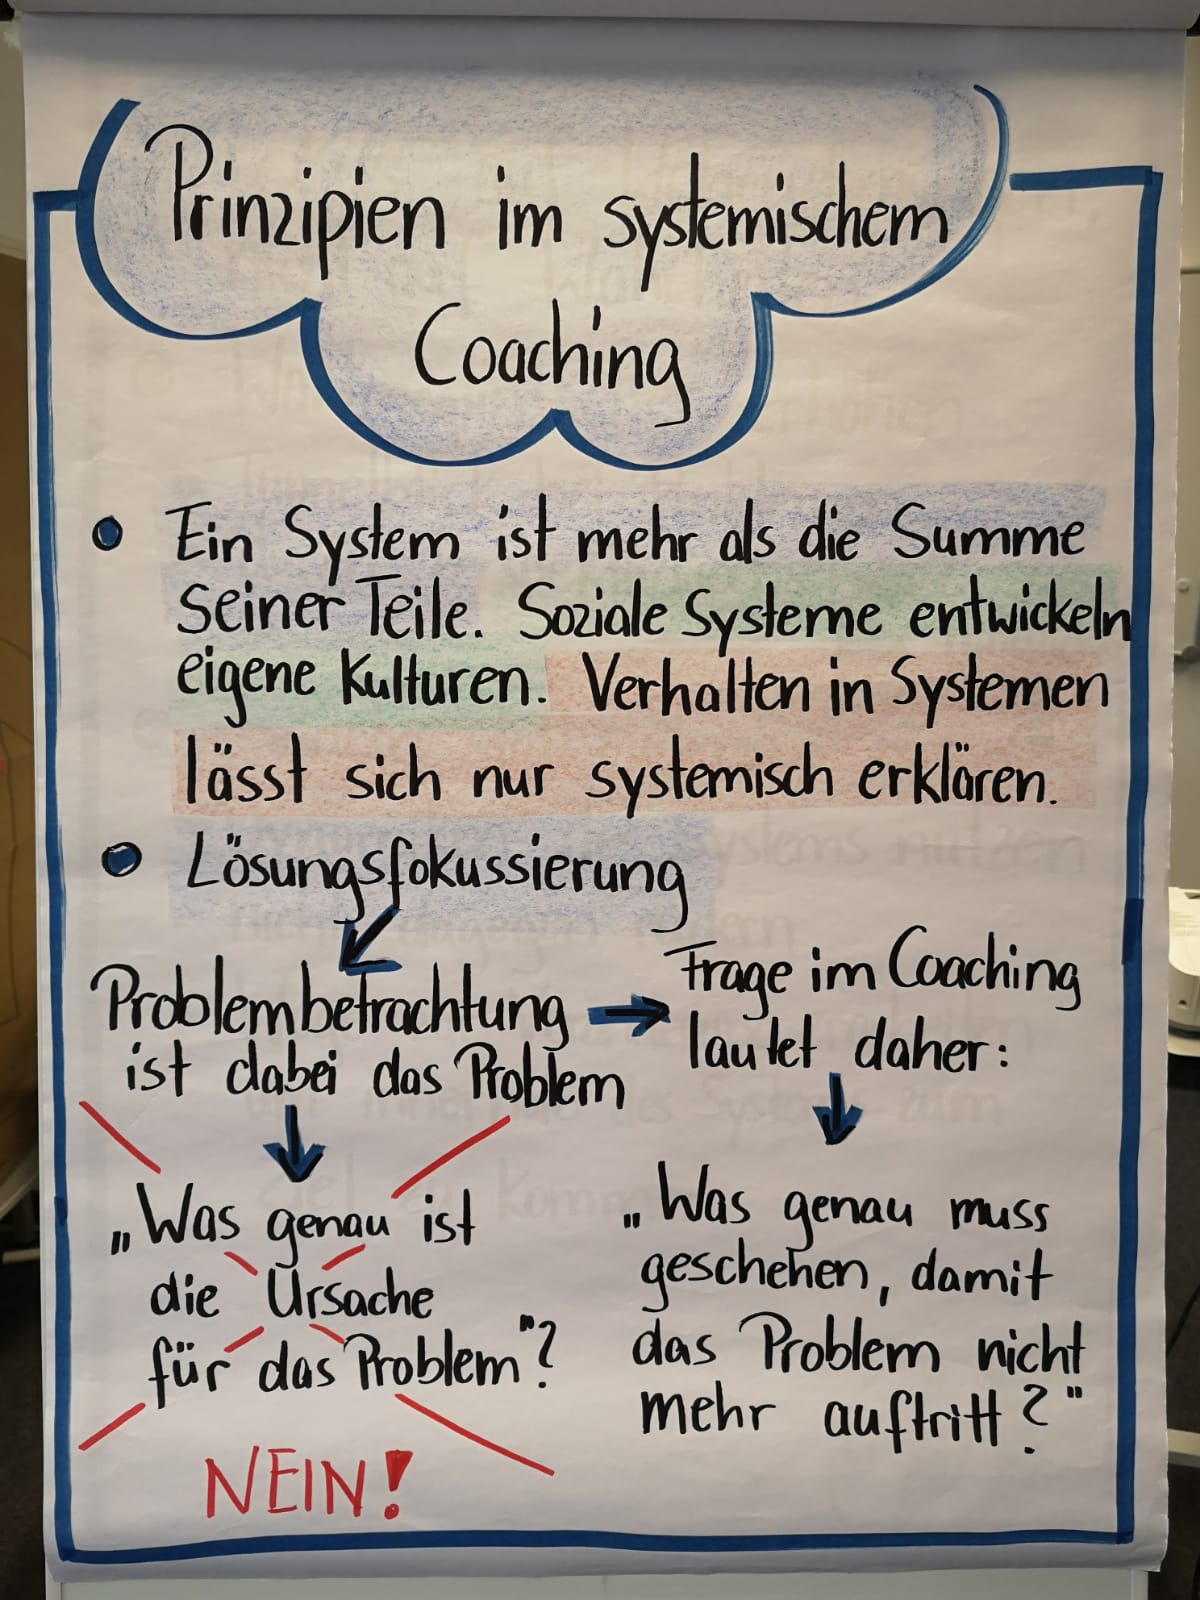 Prinzipien im systemischem
Coaching
Ein System ist mehr als die Summe
seiner Teile. Soziale Systeme entwickeln
eigene Kulturen. Verhalten in Systemen
lässt sich nur systemisch erklären.
Lösungsfokussierung
Problembetrachtung
ist dabei das Problem
„Was genau ist
die Ursache
für das Problem"?
NEIN!
Frage im Coaching
lautet daher:
„Was genau muss
geschehen, damit
das Problem nicht
mehr auftritt?"